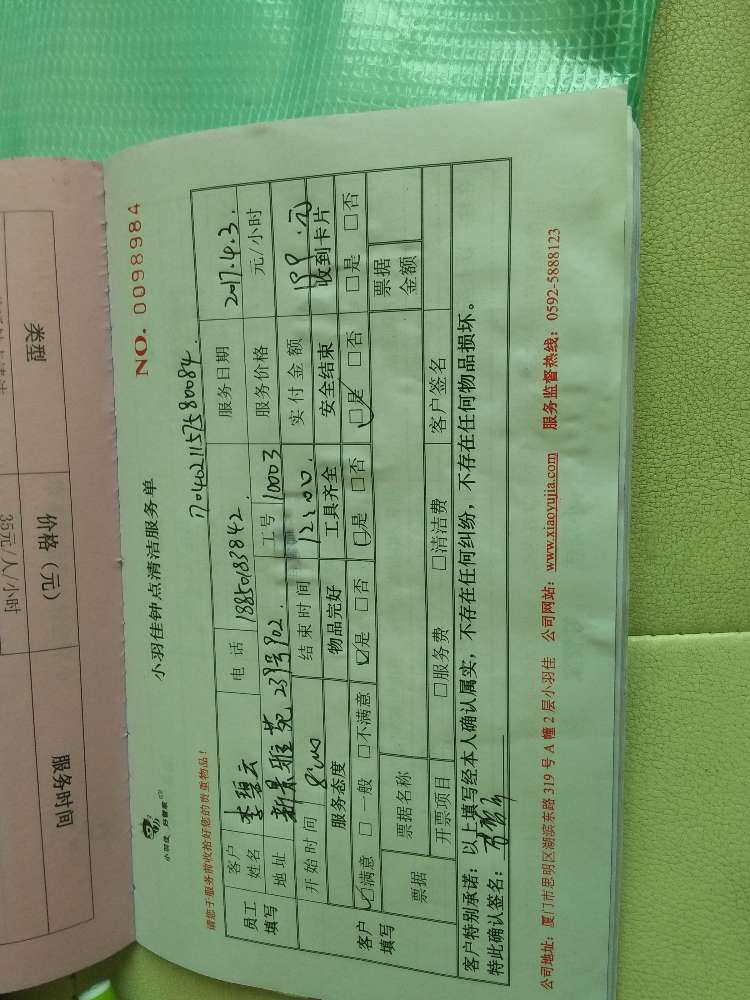 类型
价格（元）
35元/人/小时
服务时间
小羽佳钟点清洁服务单
NO. 0098984
小羽佳 好管家
请您于服务前收拾好您的贵重物品！
1704021157580084.
员工填写 客户姓名 李碧云 电话 18850183842. 服务日期 2017.4.3.
地址 新景雅苑 239号902. 工号 10003 服务价格 元/小时
客户填写 开始时间 8:00 结束时间 12:00. 实付金额 199.元
服务态度 物品完好 工具齐全 安全结束 收到卡片
☑满意 □一般 □不满意 ☑是 □否 ☑是 □否 ☑是 □否 □是 □否
票据 票据名称 票据金额
开票项目 □服务费 □清洁费 客户签名
客户特别承诺：以上填写经本人确认属实，不存在任何纠纷，不存在任何物品损坏。
特此确认签名：
公司地址：厦门市思明区湖滨东路 319 号 A 幢 2 层小羽佳 公司网站：www.xiaoyujia.com 服务监督热线：0592-5888123